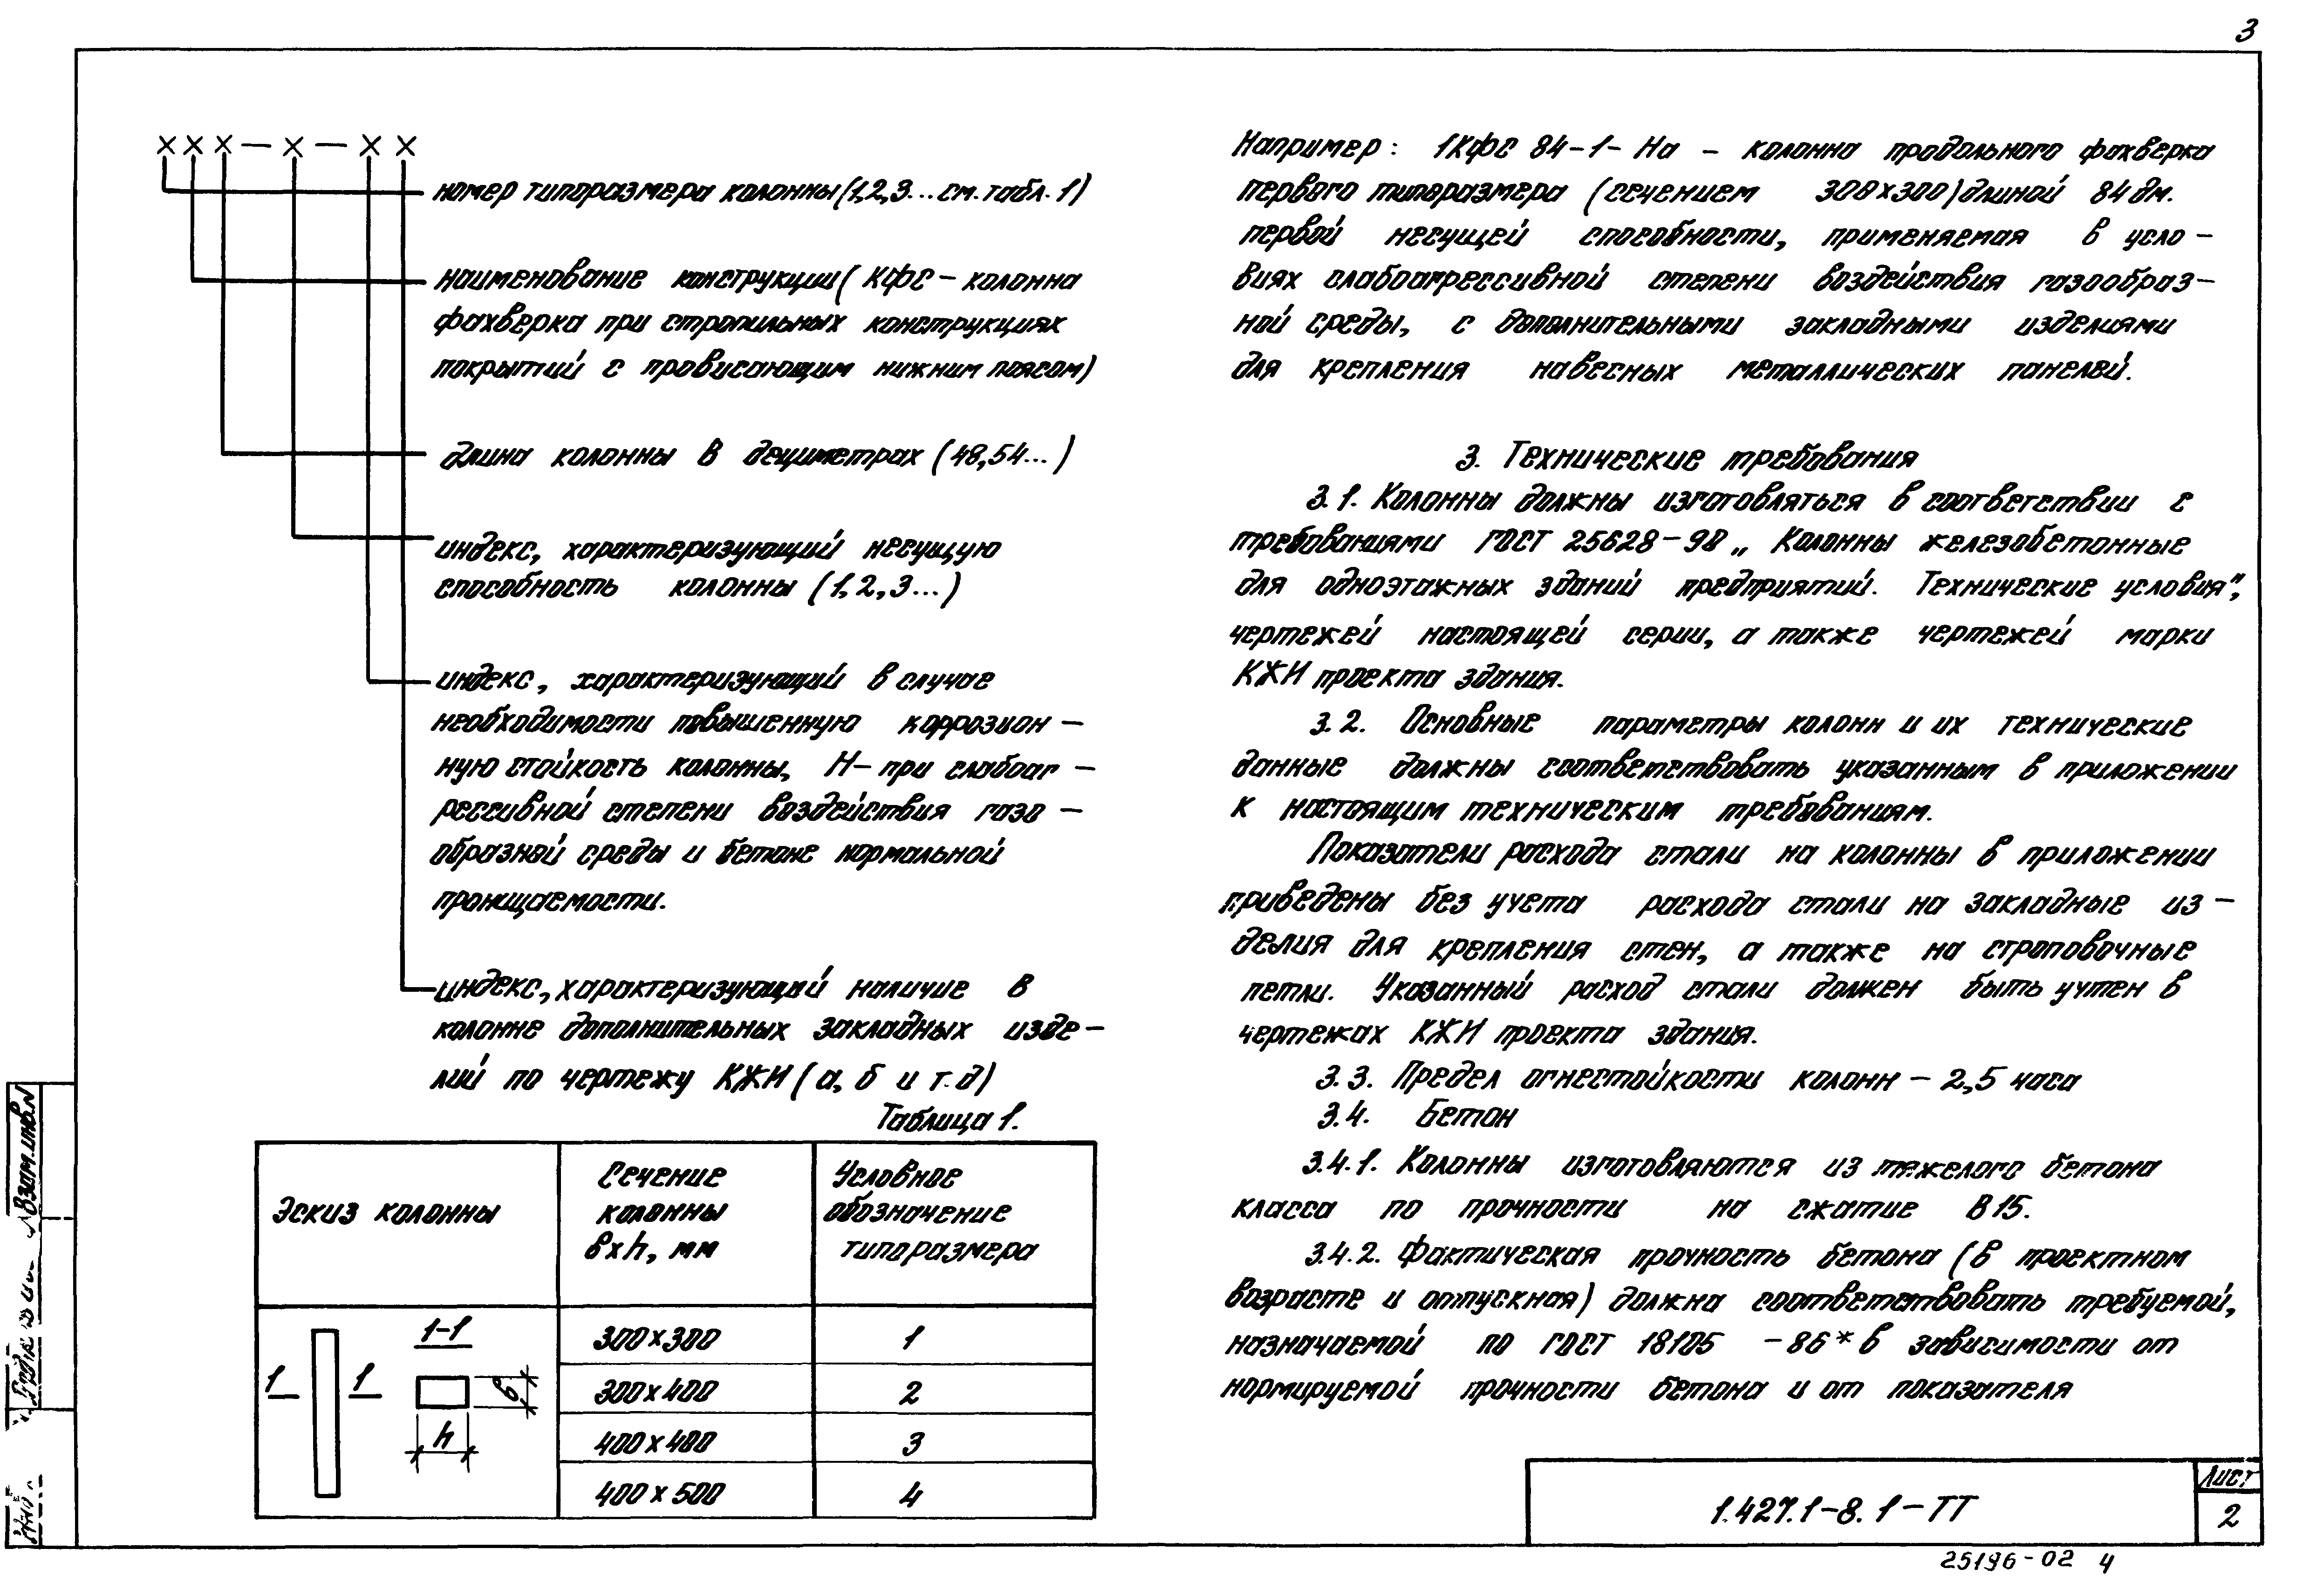 3
ххх – х – х х
номер типоразмера колонны (1,2,3... см. табл. 1)
наименование конструкции (КФС – колонна
фахверка при стропильных конструкциях
покрытий с провисающим нижним поясом)
длина колонны в дециметрах (48,54...)
индекс, характеризующий несущую
способность колонны (1,2,3...)
индекс, характеризующий в случае
необходимости повышенную коррозион –
ную стойкость колонны, Н– при слабоаг –
рессивной степени воздействия газо –
образной среды и бетоне нормальной
проницаемости.
индекс, характеризующий наличие в
колонне дополнительных закладных изде –
лий по чертежу КЖИ (а, б и т.д)
Таблица 1.
Эскиз колонны
Сечение
колонны
вхh, мм
Условное
обозначение
типоразмера
1
1
1-1
в
h
300х300
1
300х400
2
400х400
3
400х500
4
Например: 1КФС 84–1– На – колонна продольного фахверка
первого типоразмера (сечением 300х300) длиной 84 дм.
первой несущей способности, применяемая в усло –
виях слабоагрессивной степени воздействия газообраз–
ной среды, с дополнительными закладными изделиями
для крепления навесных металлических панелей.
3. Технические требования
3.1. Колонны должны изготовляться в соответствии с
требованиями ГОСТ 25628–90 „ Колонны железобетонные
для одноэтажных зданий предприятий. Технические условия",
чертежей настоящей серии, а также чертежей марки
КЖИ проекта здания.
3.2. Основные параметры колонн и их технические
данные должны соответствовать указанным в приложении
к настоящим техническим требованиям.
Показатели расхода стали на колонны в приложении
приведены без учета расхода стали на закладные из –
делия для крепления стен, а также на строповочные
петли. Указанный расход стали должен быть учтен в
чертежах КЖИ проекта здания.
3.3. Предел огнестойкости колонн – 2,5 часа
3.4. Бетон
3.4.1. Колонны изготовляются из тяжелого бетона
класса по прочности на сжатие В15.
3.4.2. Фактическая прочность бетона (в проектном
возрасте и отпускная) должна соответствовать требуемой,
назначаемой по ГОСТ 18105 – 86* в зависимости от
нормируемой прочности бетона и от показателя
1.427.1–8. 1–ТТ
Лист
2
25196-02 4
Взам.инв.N